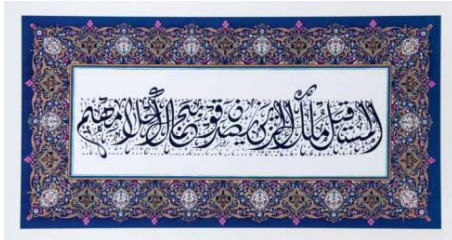 المستقبل ملك الذين يصدقون بجمال أحلامهم